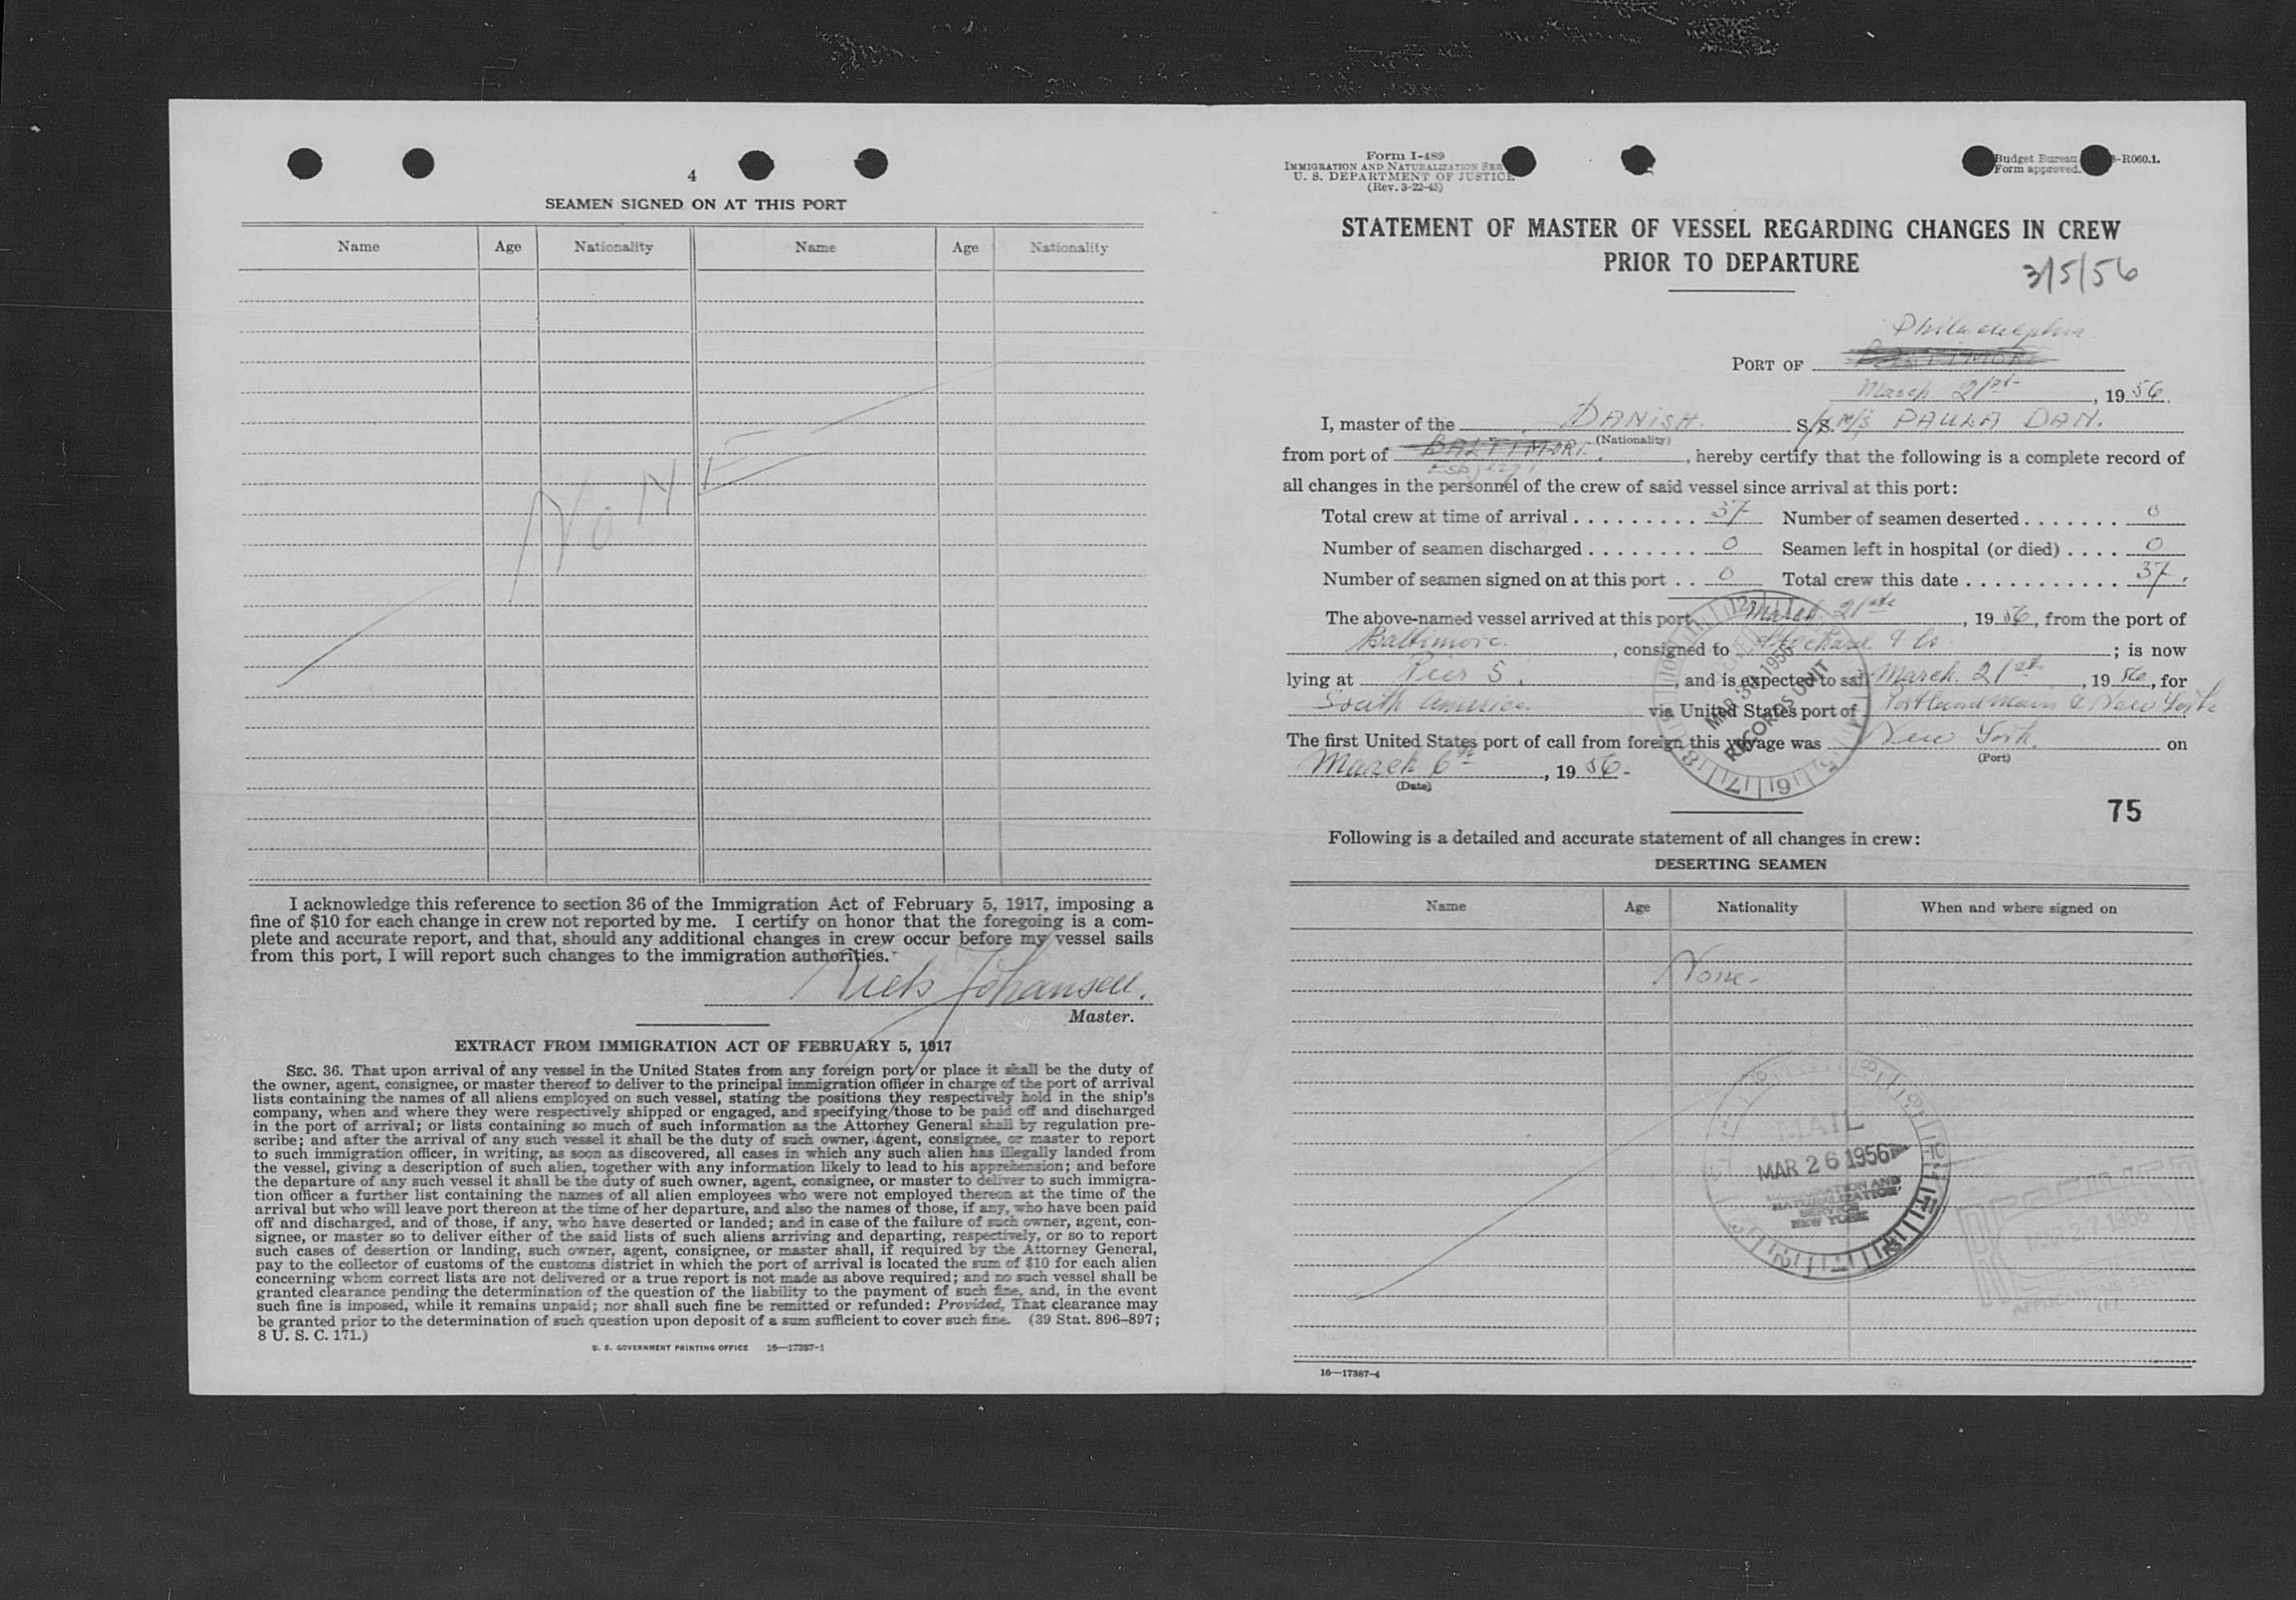 4
SEAMEN SIGNED ON AT THIS PORT
Name Age Nationality Name Age Nationality
NONE
I acknowledge this reference to section 36 of the Immigration Act of February 5, 1917, imposing a
fine of $10 for each change in crew not reported by me. I certify on honor that the foregoing is a com-
plete and accurate report, and that, should any additional changes in crew occur before my vessel sails
from this port, I will report such changes to the immigration authorities.
Niels Johansen.
Master.
EXTRACT FROM IMMIGRATION ACT OF FEBRUARY 5, 1917
SEC. 36. That upon arrival of any vessel in the United States from any foreign port or place it shall be the duty of
the owner, agent, consignee, or master thereof to deliver to the principal immigration officer in charge of the port of arrival
lists containing the names of all aliens employed on such vessel, stating the positions they respectively hold in the ship's
company, when and where they were respectively shipped or engaged, and specifying those to be paid off and discharged
in the port of arrival; or lists containing so much of such information as the Attorney General shall by regulation pre-
scribe; and after the arrival of any such vessel it shall be the duty of such owner, agent, consignee, or master to report
to such immigration officer, in writing, as soon as discovered, all cases in which any such alien has illegally landed from
the vessel, giving a description of such alien, together with any information likely to lead to his apprehension; and before
the departure of any such vessel it shall be the duty of such owner, agent, consignee, or master to deliver to such immigra-
tion officer a further list containing the names of all alien employees who were not employed thereon at the time of the
arrival but who will leave port thereon at the time of her departure, and also the names of those, if any, who have been paid
off and discharged, and of those, if any, who have deserted or landed; and in case of the failure of such owner, agent, con-
signee, or master so to deliver either of the said lists of such aliens arriving and departing, respectively, or so to report
such cases of desertion or landing, such owner, agent, consignee, or master shall, if required by the Attorney General,
pay to the collector of customs of the customs district in which the port of arrival is located the sum of $10 for each alien
concerning whom correct lists are not delivered or a true report is not made as above required; and no such vessel shall be
granted clearance pending the determination of the question of the liability to the payment of such fine, and, in the event
such fine is imposed, while it remains unpaid; nor shall such fine be remitted or refunded: Provided, That clearance may
be granted prior to the determination of such question upon deposit of a sum sufficient to cover such fine. (39 Stat. 896–897;
8 U. S. C. 171.)
U. S. GOVERNMENT PRINTING OFFICE 16—17387-1
Form I-489
IMMIGRATION AND NATURALIZATION SER
U. S. DEPARTMENT OF JUSTICE
(Rev. 3-22-45)
Budget Bureau -R060.1.
Form approved.
STATEMENT OF MASTER OF VESSEL REGARDING CHANGES IN CREW
PRIOR TO DEPARTURE
3/5/56
Philadelphia
PORT OF BALTIMORE
March 21st, 1956.
I, master of the DANISH. S.S. M/S PAULA DAN.
(Nationality)
from port of BALTIMORE, hereby certify that the following is a complete record of
Esbjerg
all changes in the personnel of the crew of said vessel since arrival at this port:
Total crew at time of arrival 37 Number of seamen deserted 0
Number of seamen discharged 0 Seamen left in hospital (or died) 0
Number of seamen signed on at this port 0 Total crew this date 37.
The above-named vessel arrived at this port March 21st, 1956, from the port of
Baltimore., consigned to & Co.; is now
lying at Pier 5., and is expected to sail March 21st, 1956, for
South America via United States port of Portland Main & New York
The first United States port of call from foreign this voyage was New York. on
(Port)
March 6th, 1956.
(Date)
MAR 30 1956
RECORDS UNIT
75
Following is a detailed and accurate statement of all changes in crew:
DESERTING SEAMEN
Name Age Nationality When and where signed on
None.
MAIL
MAR 26 1956
IMMIGRATION AND
NATURALIZATION
SERVICE
NEW YORK
MAR 27 1956
16—17387-4